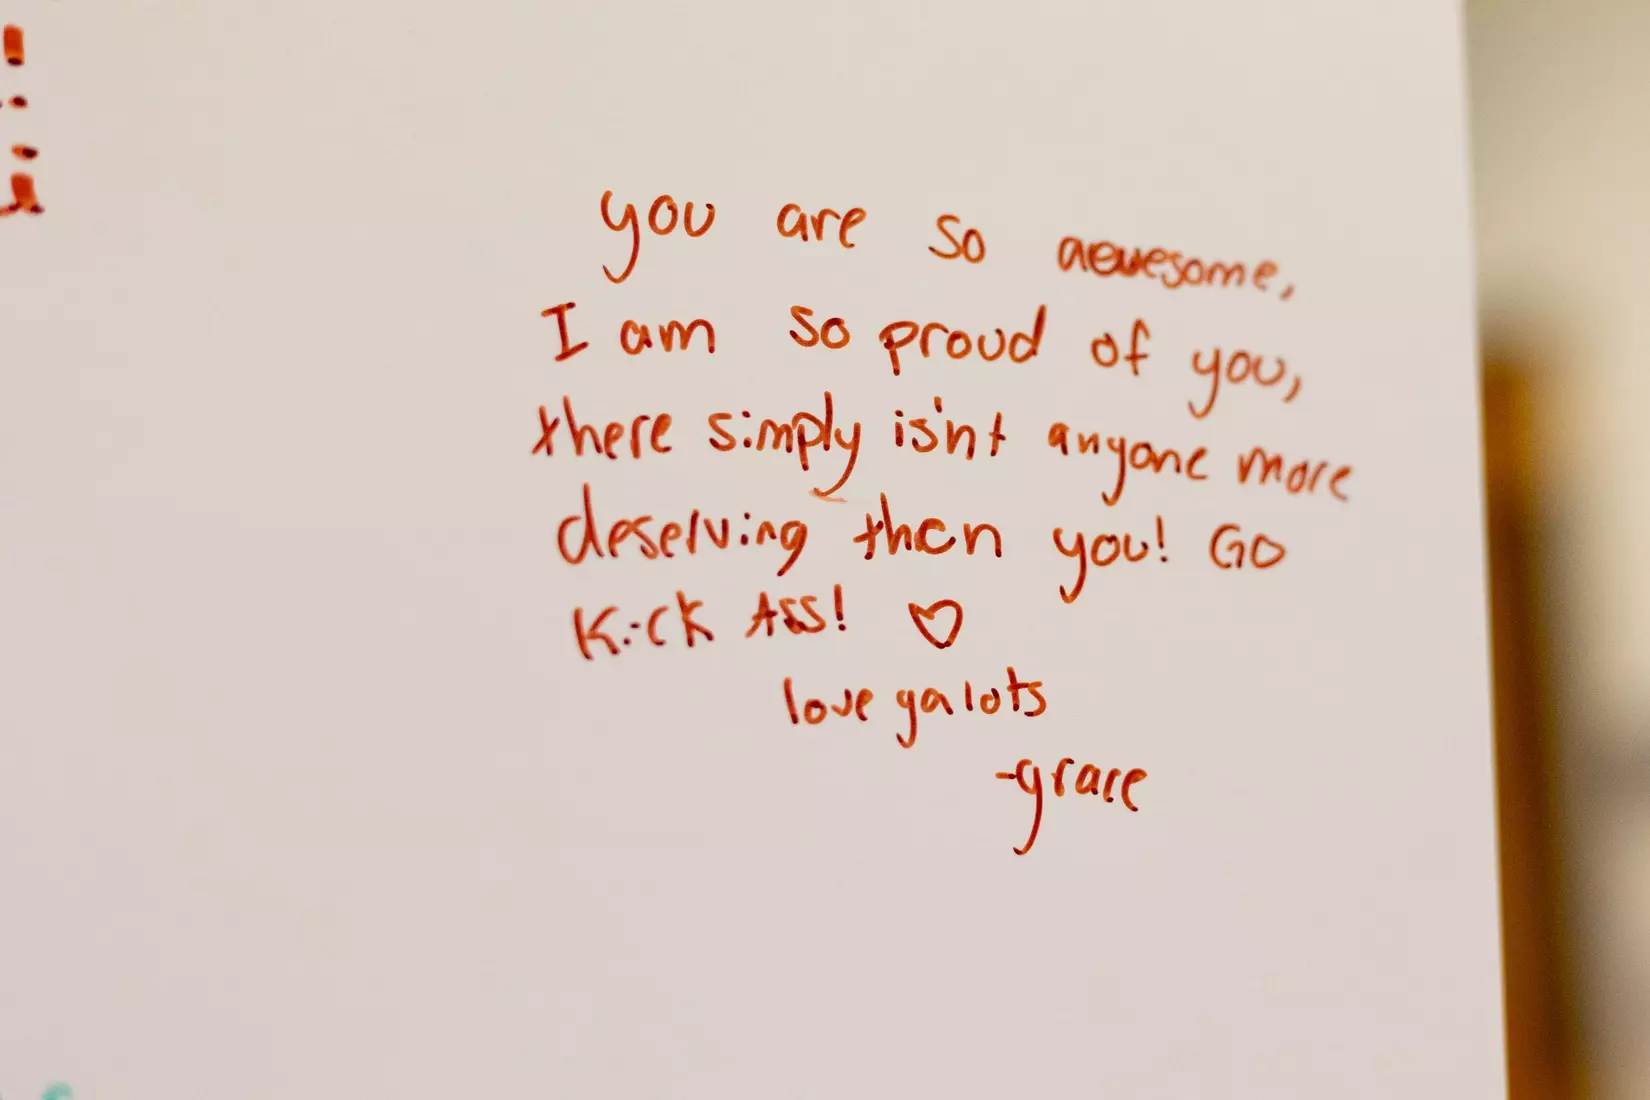 you are so awesome,
I am so proud of you,
there simply isn't anyone more
deserving then you! Go
Kick Ass! ♡
love ya lots
-grace